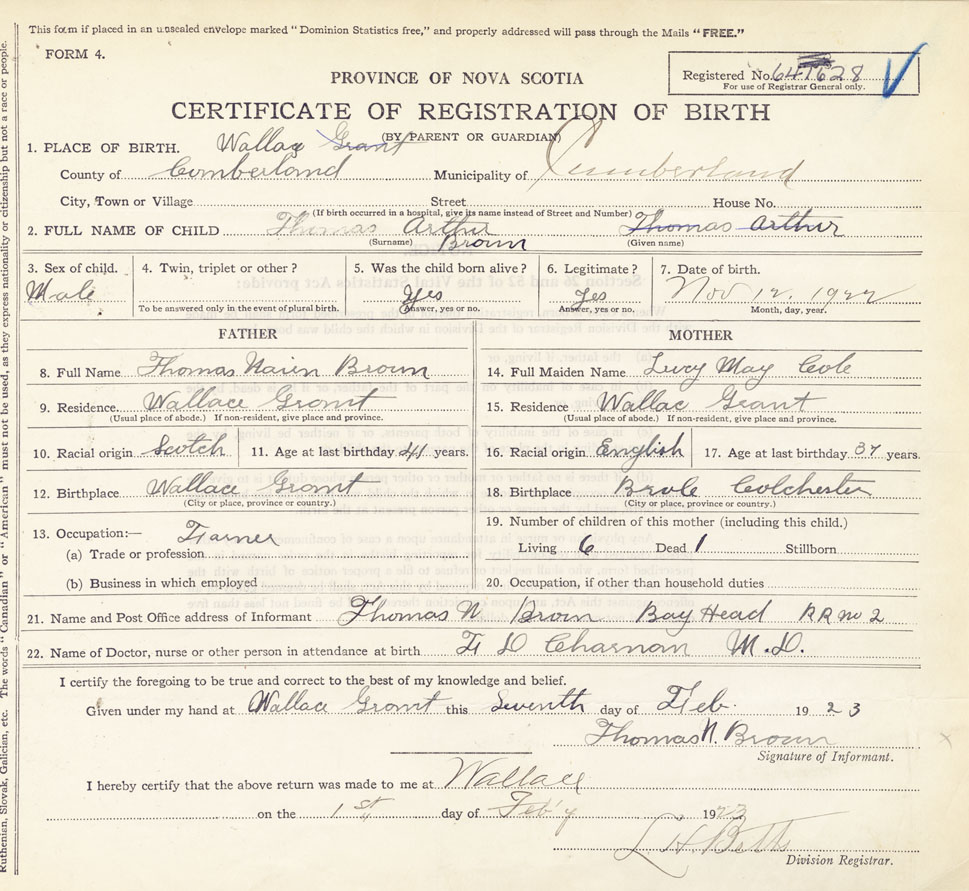 This form if placed in an unsealed envelope marked "Dominion Statistics free," and properly addressed will pass through the Mails "FREE."
FORM 4.
PROVINCE OF NOVA SCOTIA
Registered No. 628
For use of Registrar General only.
CERTIFICATE OF REGISTRATION OF BIRTH
(BY PARENT OR GUARDIAN)
1. PLACE OF BIRTH. Wallace Grant
County of Comberland Municipality of Cumberland
City, Town or Village Street House No.
(If birth occurred in a hospital, give its name instead of Street and Number)
2. FULL NAME OF CHILD Thomas Arthur Thomas Arthur
(Surname) Brown (Given name)
3. Sex of child. 4. Twin, triplet or other? 5. Was the child born alive? 6. Legitimate? 7. Date of birth.
Male Yes Yes Nov 12, 1922
To be answered only in the event of plural birth. Answer, yes or no. Answer, yes or no. Month, day, year.
FATHER MOTHER
8. Full Name Thomas Nairn Brown 14. Full Maiden Name Lucy May Cole
9. Residence. Wallace Grant 15. Residence Wallac Grant
(Usual place of abode.) If non-resident, give place and province. (Usual place of abode.) If non-resident, give place and province.
10. Racial origin Scotch 11. Age at last birthday 41 years. 16. Racial origin English 17. Age at last birthday 37 years.
12. Birthplace Wallace Grant 18. Birthplace Brule Colchester
(City or place, province or country.) (City or place, province or country.)
13. Occupation:— Farmer 19. Number of children of this mother (including this child.)
(a) Trade or profession Living 6 Dead 1 Stillborn
(b) Business in which employed 20. Occupation, if other than household duties
21. Name and Post Office address of Informant Thomas N Brown Bay Head RR no 2
22. Name of Doctor, nurse or other person in attendance at birth F D Charman M.D.
I certify the foregoing to be true and correct to the best of my knowledge and belief.
Given under my hand at Wallace Grant this Seventh day of Feb. 1923
Thomas N. Brown
Signature of Informant.
I hereby certify that the above return was made to me at Wallace
on the day of Feb'y 1923
L H. Betts
Division Registrar.
Ruthenian, Slovak, Galician, etc. The words "Canadian" or "American" must not be used, as they express nationality or citizenship but not a race or people.